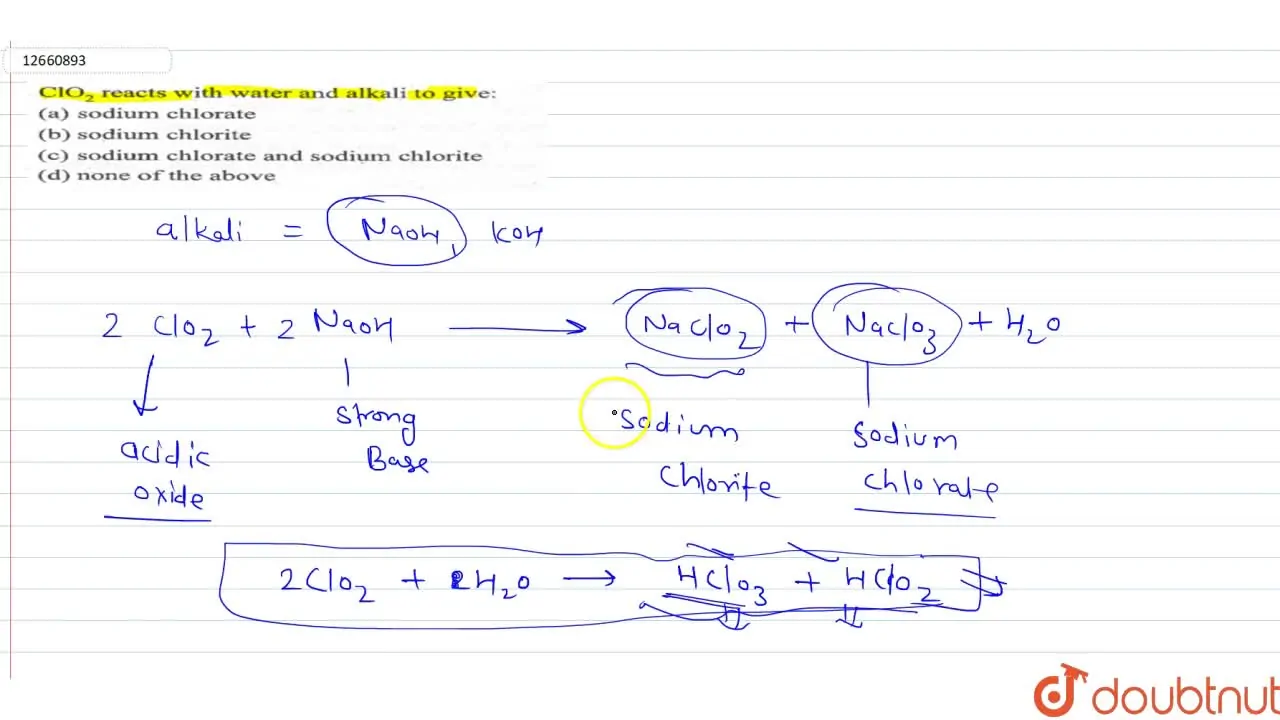 12660893
ClO₂ reacts with water and alkali to give:
(a) sodium chlorate
(b) sodium chlorite
(c) sodium chlorate and sodium chlorite
(d) none of the above
alkali = NaOH, KOH
2 ClO₂ + 2 NaOH ⟶ NaClO₂ + NaClO₃ + H₂O
acidic oxide
Strong Base
Sodium Chlorite
Sodium Chlorate
2ClO₂ + H₂O ⟶ HClO₃ + HClO₂
doubtnut